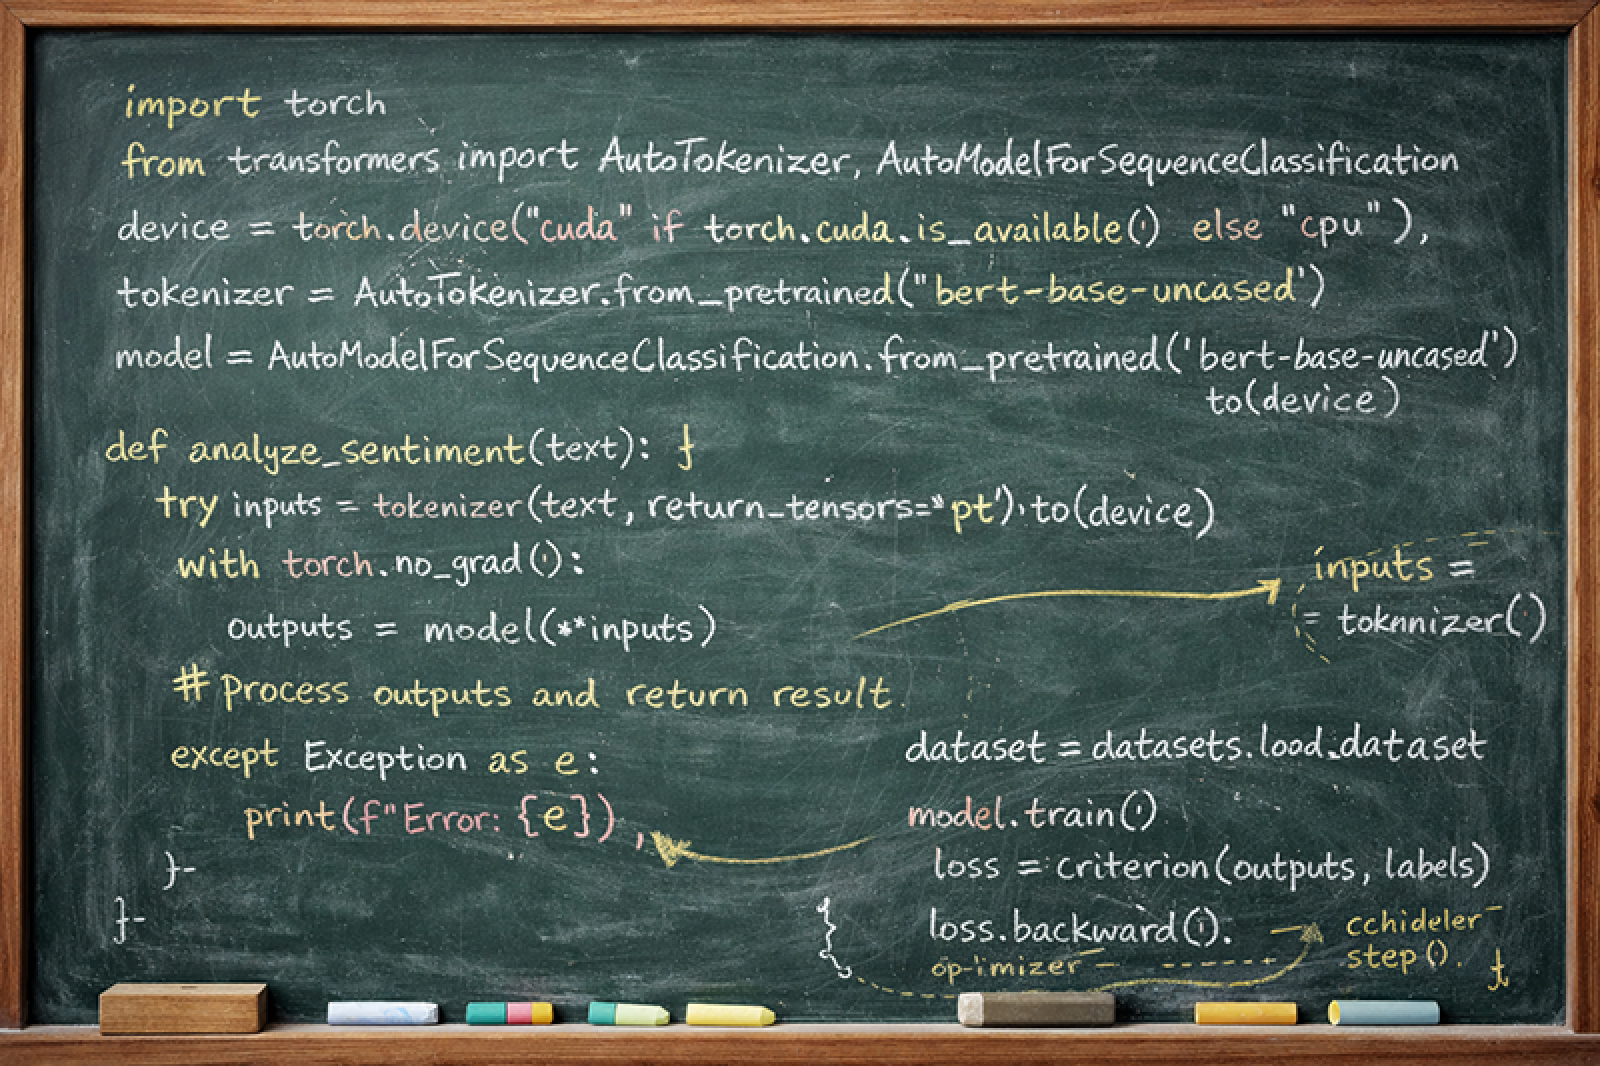 import torch
from transformers import AutoTokenizer, AutoModelForSequenceClassification
device = torch.device("cuda" if torch.cuda.is_available() else "cpu"),
tokenizer = AutoTokenizer.from_pretrained("bert-base-uncased')
model = AutoModelForSequenceClassification.from_pretrained('bert-base-uncased')
to(device)
def analyze_sentiment(text): }
try inputs = tokenizer(text, return_tensors="pt').to(device)
with torch.no_grad():
outputs = model(**inputs)
# Process outputs and return result.
except Exception as e:
print(f"Error: {e}) ,
}-
}-
inputs =
= toknnizer()
dataset = datasets.load_dataset
model.train()
loss = criterion(outputs, labels)
loss.backward().
op-imizer -
cchideler -
step(). }